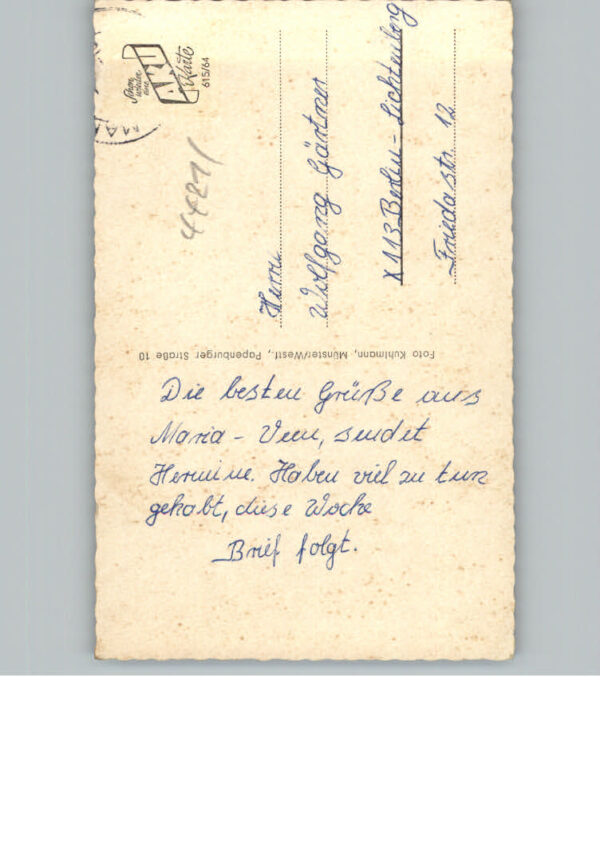 Schon
wieder
eine
Karte
615/64
4421/
Herrn
Wolfgang Gärtner
X 113 Berlin - Lichtenberg
Friedastr. 12
Foto Kuhlmann, Münster/Westf., Papenburger Straße 10
Die besten Grüße aus
Maria - Veen, sendet
Hermine. Haben viel zu tun
gehabt, diese Woche
Brief folgt.